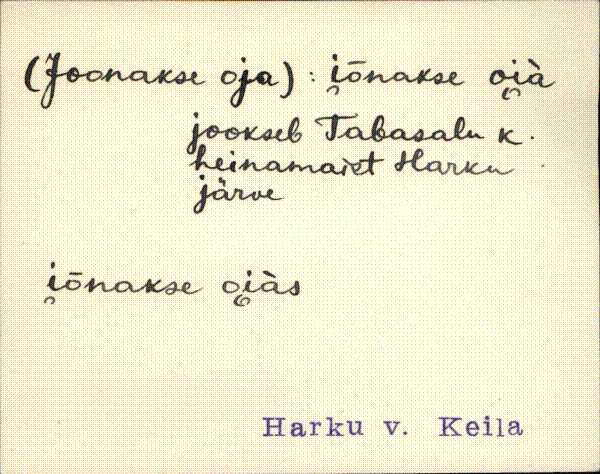 (Joonakse oja) : i̯ōnakse oi̯à
jookseb Tabasalu k.
heinamaist Harku
järve
i̯ōnakse oi̯às
Harku v. Keila